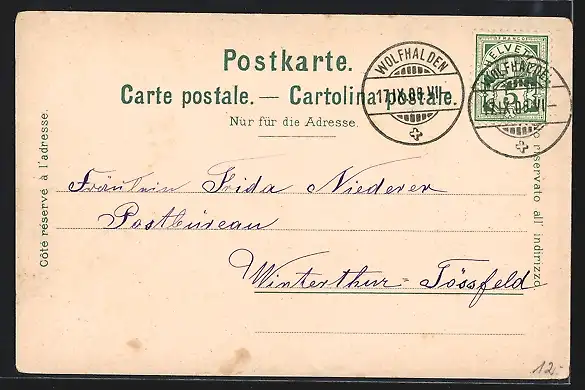 Postkarte.
Carte postale. — Cartolina postale.
Nur für die Adresse.
WOLFHALDEN
HELVETIA
5
WOLFHALDEN
Côté réservé à l'adresse.
riservato all' indirizzo.
Fräulein Frida Niederer
Postbüreau
Winterthur-Tössfeld
12.-